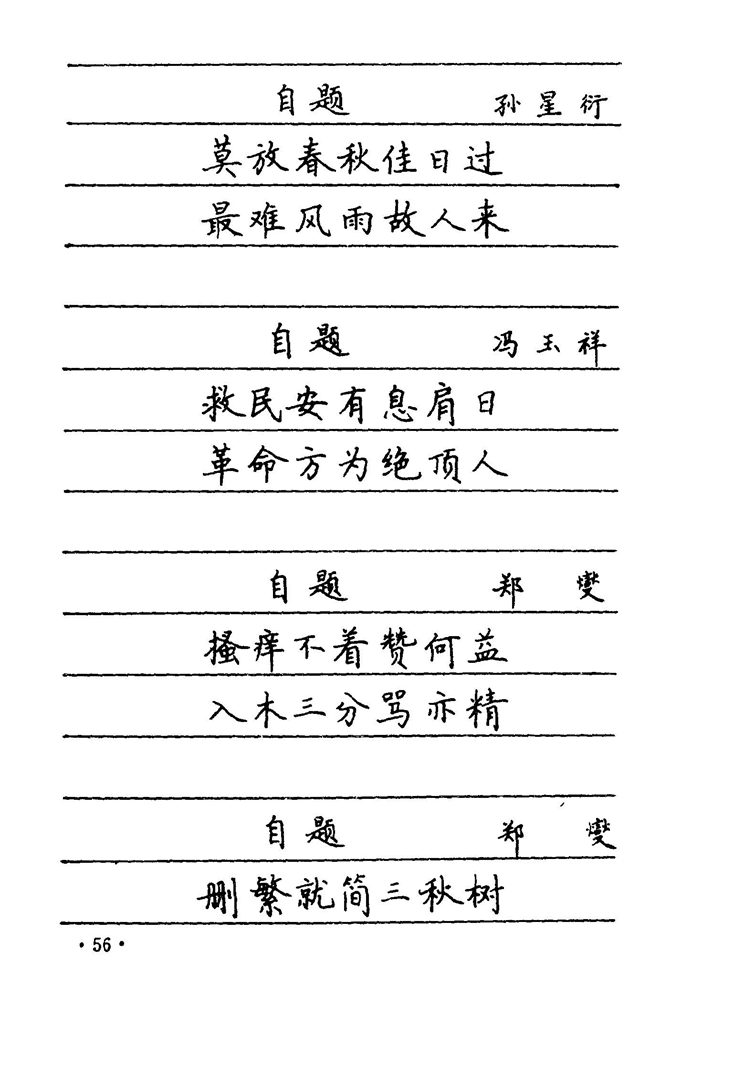 自题 孙星衍
莫放春秋佳日过
最难风雨故人来
自题 冯玉祥
救民安有息肩日
革命方为绝顶人
自题 郑燮
搔痒不着赞何益
入木三分骂亦精
自题 郑燮
删繁就简三秋树
·56·